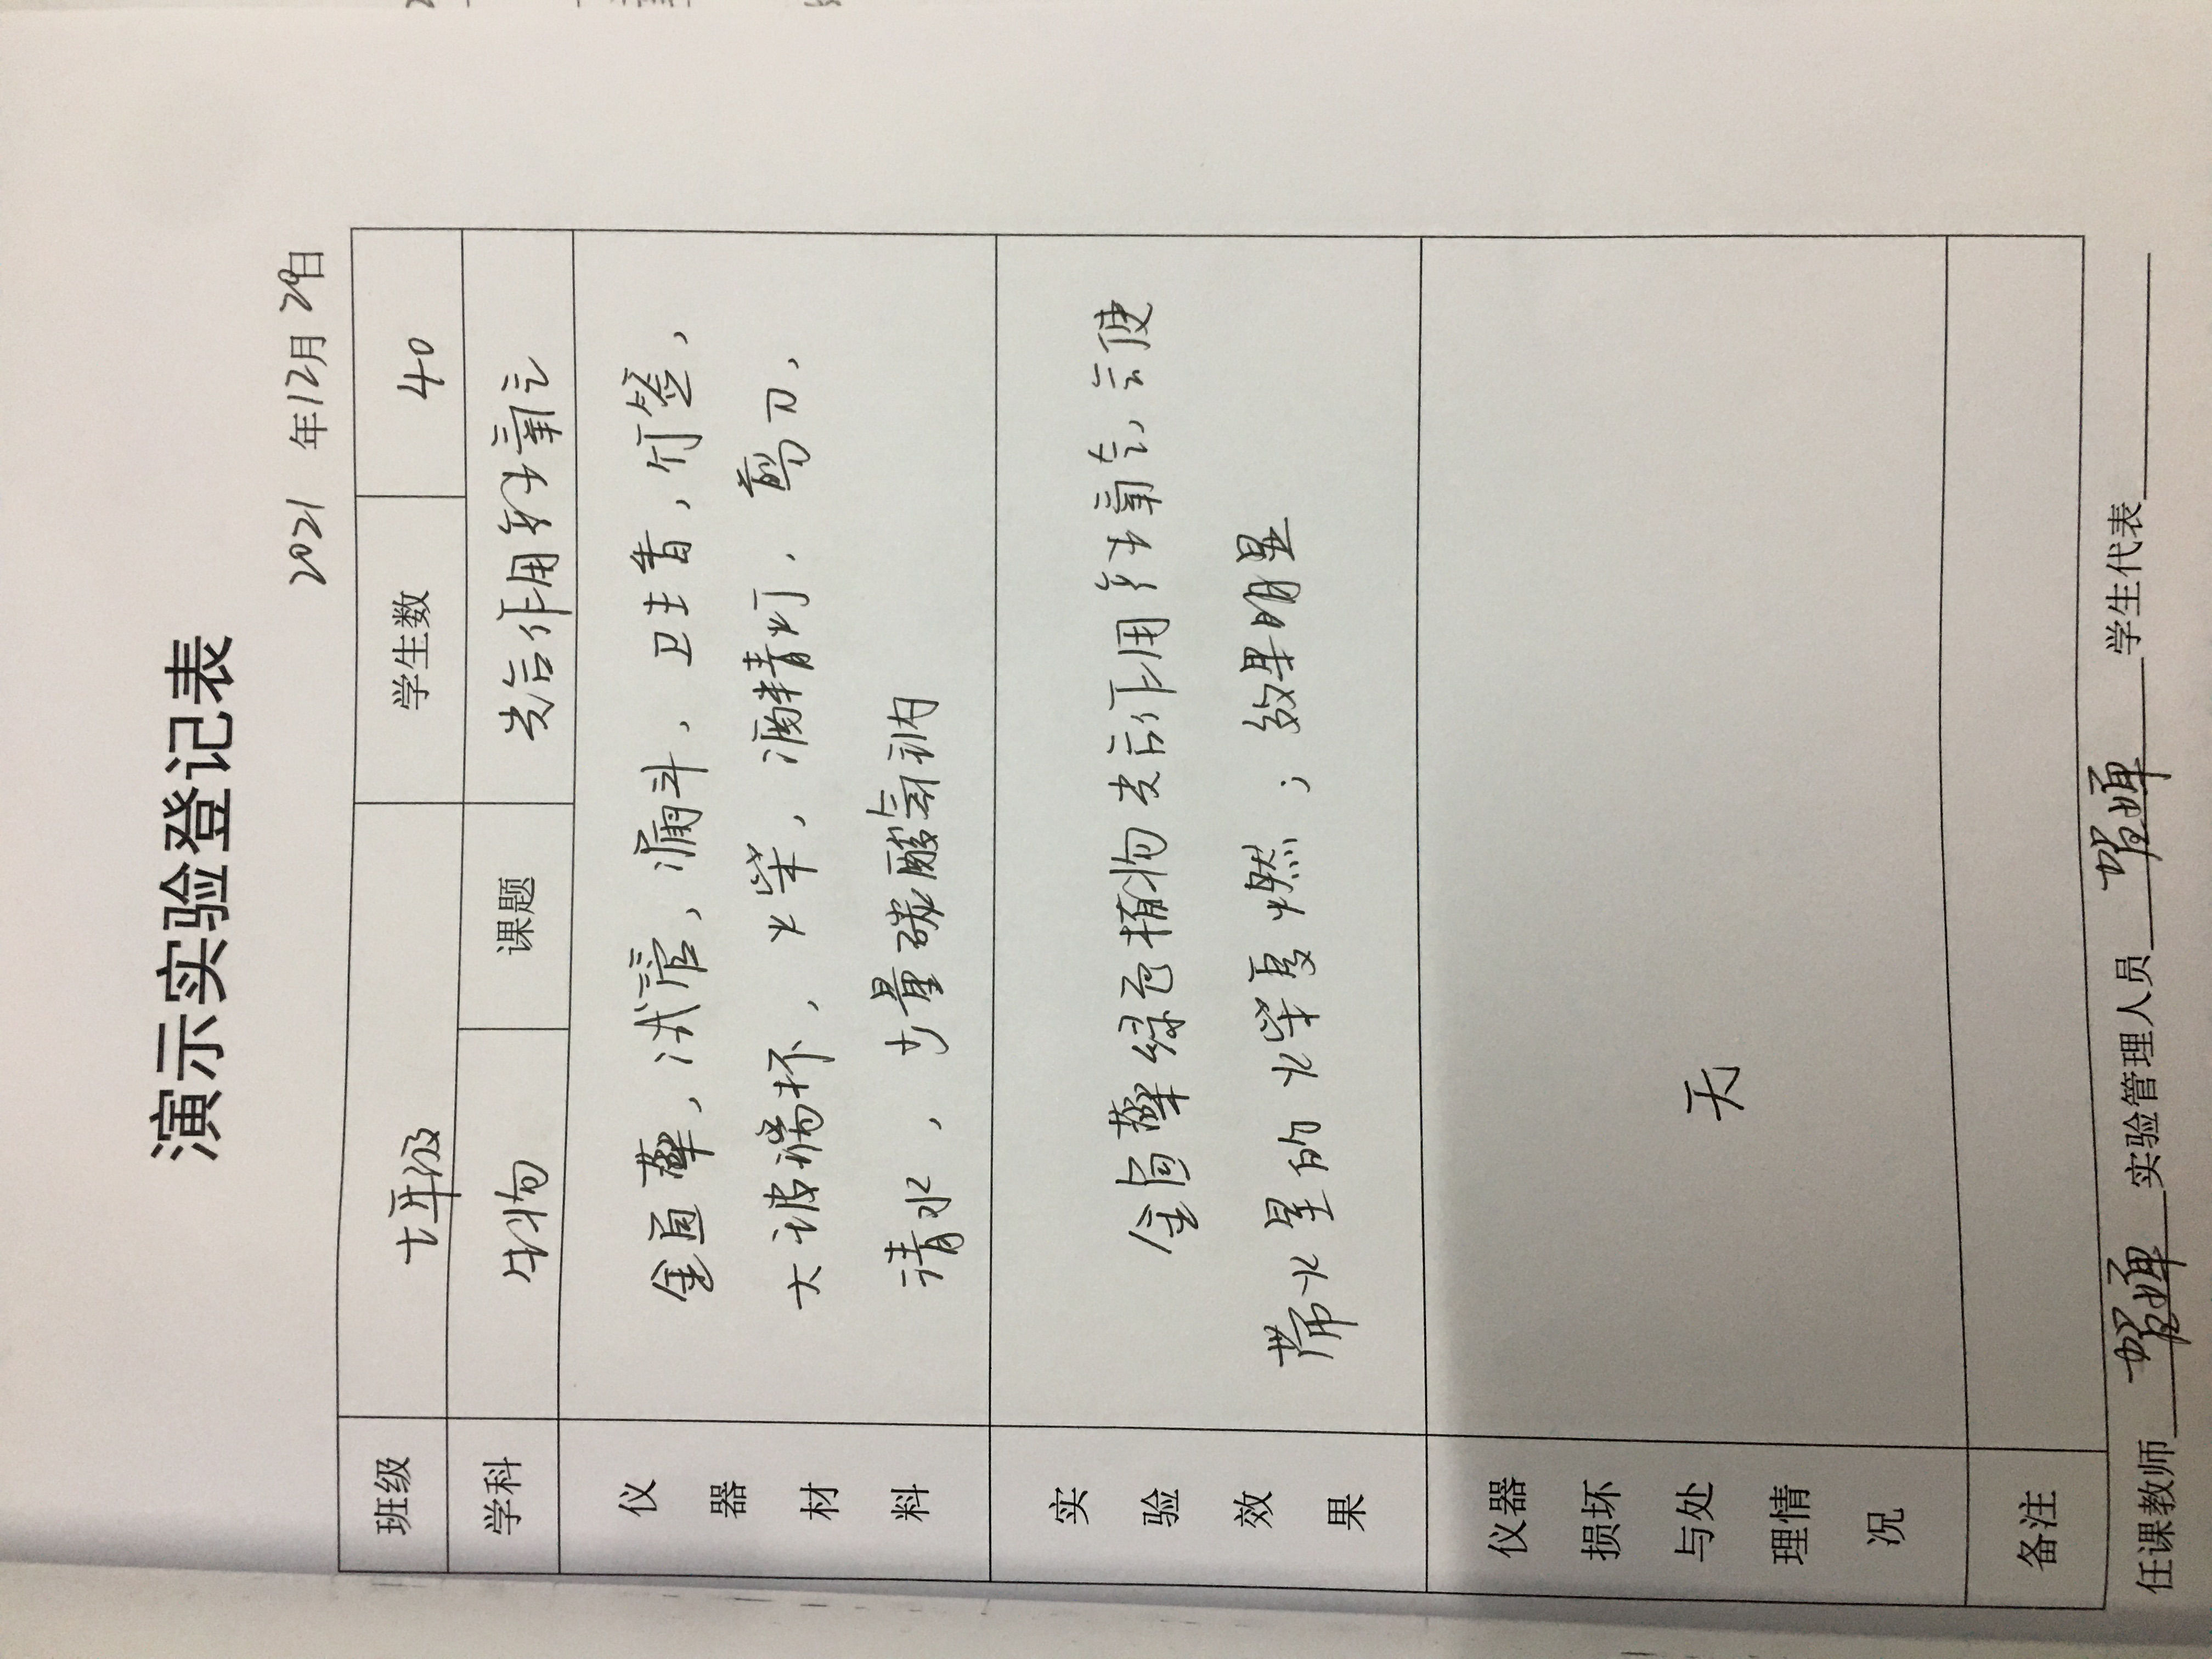 演示实验登记表
2021 年12月29日
班级 七年级 学生数 40
学科 生物 课题 光合作用释放氧气
仪器材料 金鱼藻，试管，漏斗、卫生香，竹签，
大玻璃杯、火柴，酒精灯、剪刀、
清水，少量碳酸氢钠
实验效果 金鱼藻绿色植物光合作用产生氧气，会使
带火星的火柴复燃；效果明显
仪器损坏与处理情况 无
备注
任课教师 贺婵 实验管理人员 贺婵 学生代表